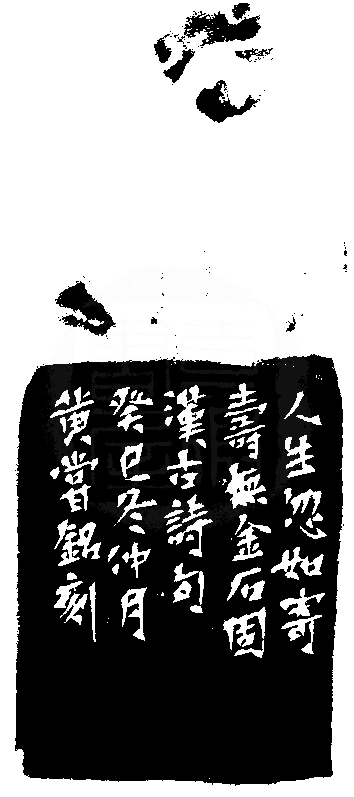 人生忽如寄
壽無金石固
漢古詩句
癸巳冬仲月
黄嘗銘刻